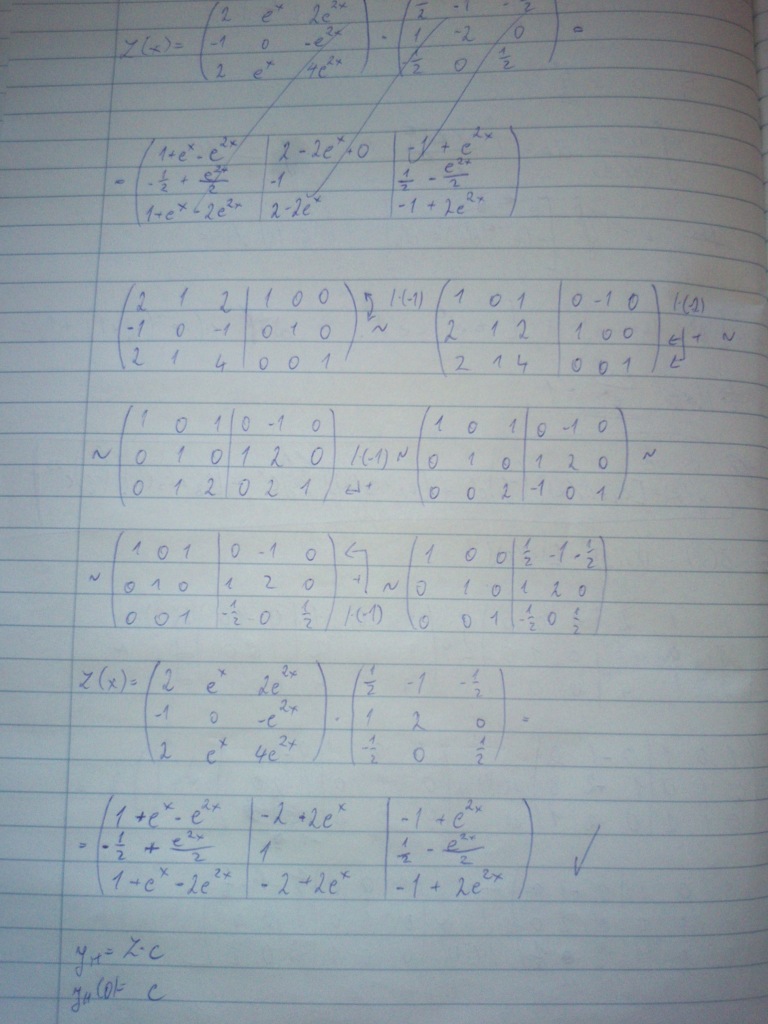 Z(x) = ( 2 e^x 2e^{2x} ; -1 0 -e^{2x} ; 2 e^x 4e^{2x} ) · ( 1/2 -1 -1/2 ; 1 -2 0 ; -1/2 0 1/2 ) =
= ( 1+e^x-e^{2x} | 2-2e^x 0 | -1+e^{2x} ; -1/2 + e^{2x}/2 | -1 | 1/2 - e^{2x}/2 ; 1+e^x-2e^{2x} | 2-2e^x | -1+2e^{2x} )
( 2 1 2 | 1 0 0 ; -1 0 -1 | 0 1 0 ; 2 1 4 | 0 0 1 ) |·(-1) ~ ( 1 0 1 | 0 -1 0 ; 2 1 2 | 1 0 0 ; 2 1 4 | 0 0 1 ) |·(-2) + ~
~ ( 1 0 1 | 0 -1 0 ; 0 1 0 | 1 2 0 ; 0 1 2 | 0 2 1 ) |·(-1) + ~ ( 1 0 1 | 0 -1 0 ; 0 1 0 | 1 2 0 ; 0 0 2 | -1 0 1 ) ~
~ ( 1 0 1 | 0 -1 0 ; 0 1 0 | 1 2 0 ; 0 0 1 | -1/2 0 1/2 ) |·(-1) + ~ ( 1 0 0 | 1/2 -1 -1/2 ; 0 1 0 | 1 2 0 ; 0 0 1 | -1/2 0 1/2 )
Z(x) = ( 2 e^x 2e^{2x} ; -1 0 -e^{2x} ; 2 e^x 4e^{2x} ) · ( 1/2 -1 -1/2 ; 1 2 0 ; -1/2 0 1/2 ) =
= ( 1+e^x-e^{2x} | -2+2e^x | -1+e^{2x} ; -1/2 + e^{2x}/2 | 1 | 1/2 - e^{2x}/2 ; 1+e^x-2e^{2x} | -2+2e^x | -1+2e^{2x} ) ✓
y_H = Z·c
y_H(0) = c